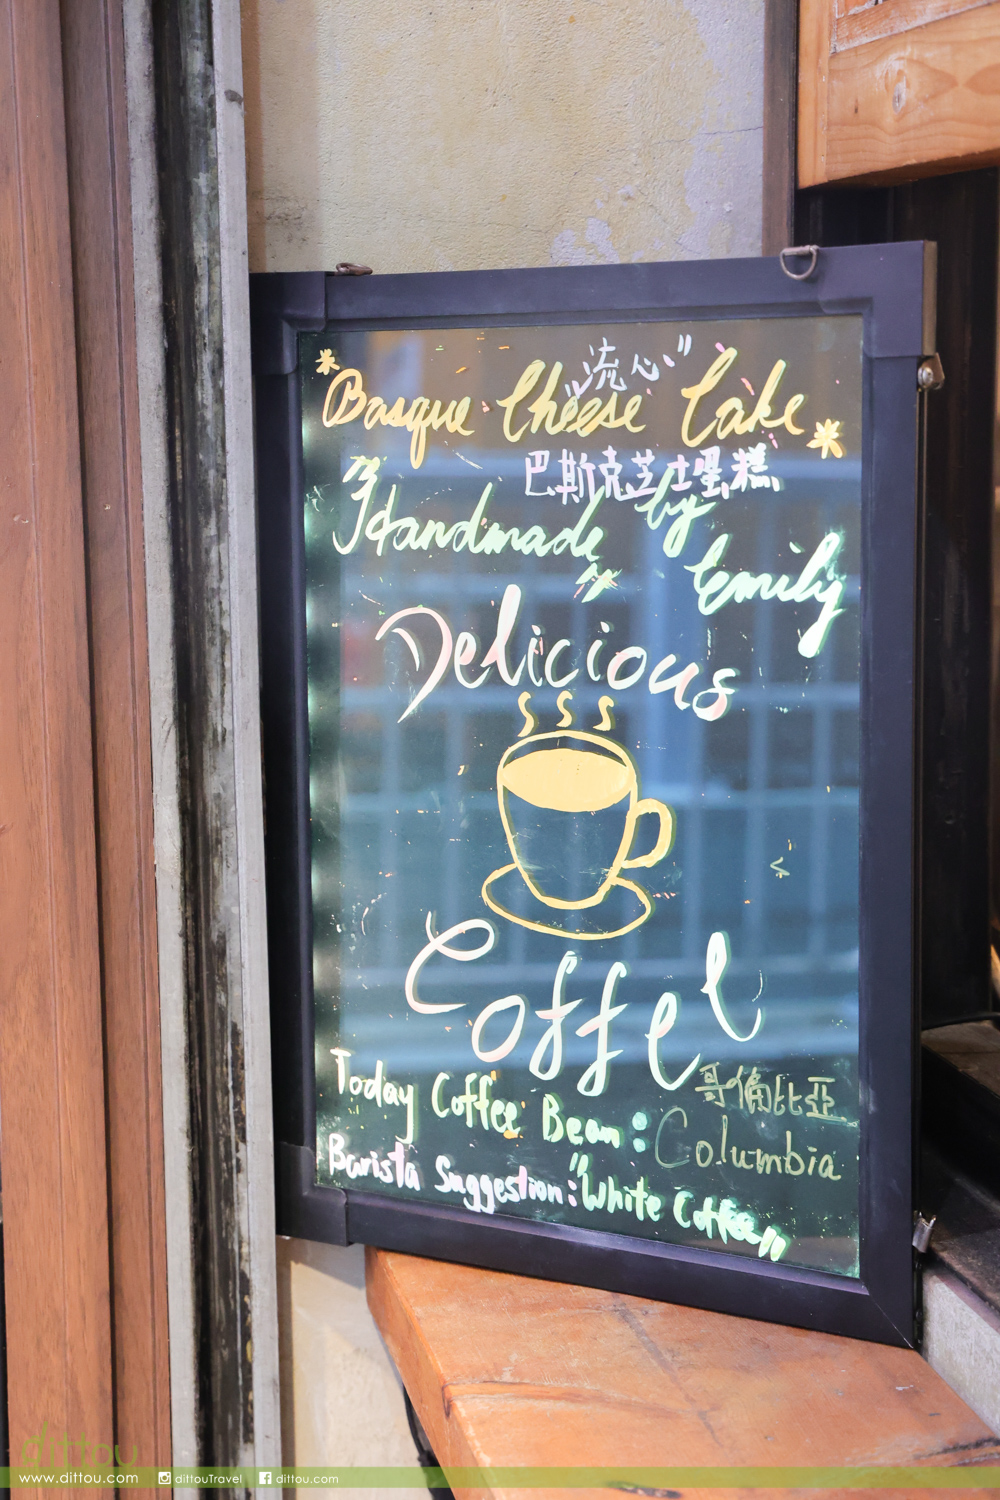 "流心"
*Basque Cheese Cake*
巴斯克芝士蛋糕
"Handmade" by
Emily
Delicious
Coffee
Today Coffee Bean: 哥倫比亞
Columbia
Barista Suggestion: "White Coffee"
dittou
www.dittou.com dittouTravel dittou.com